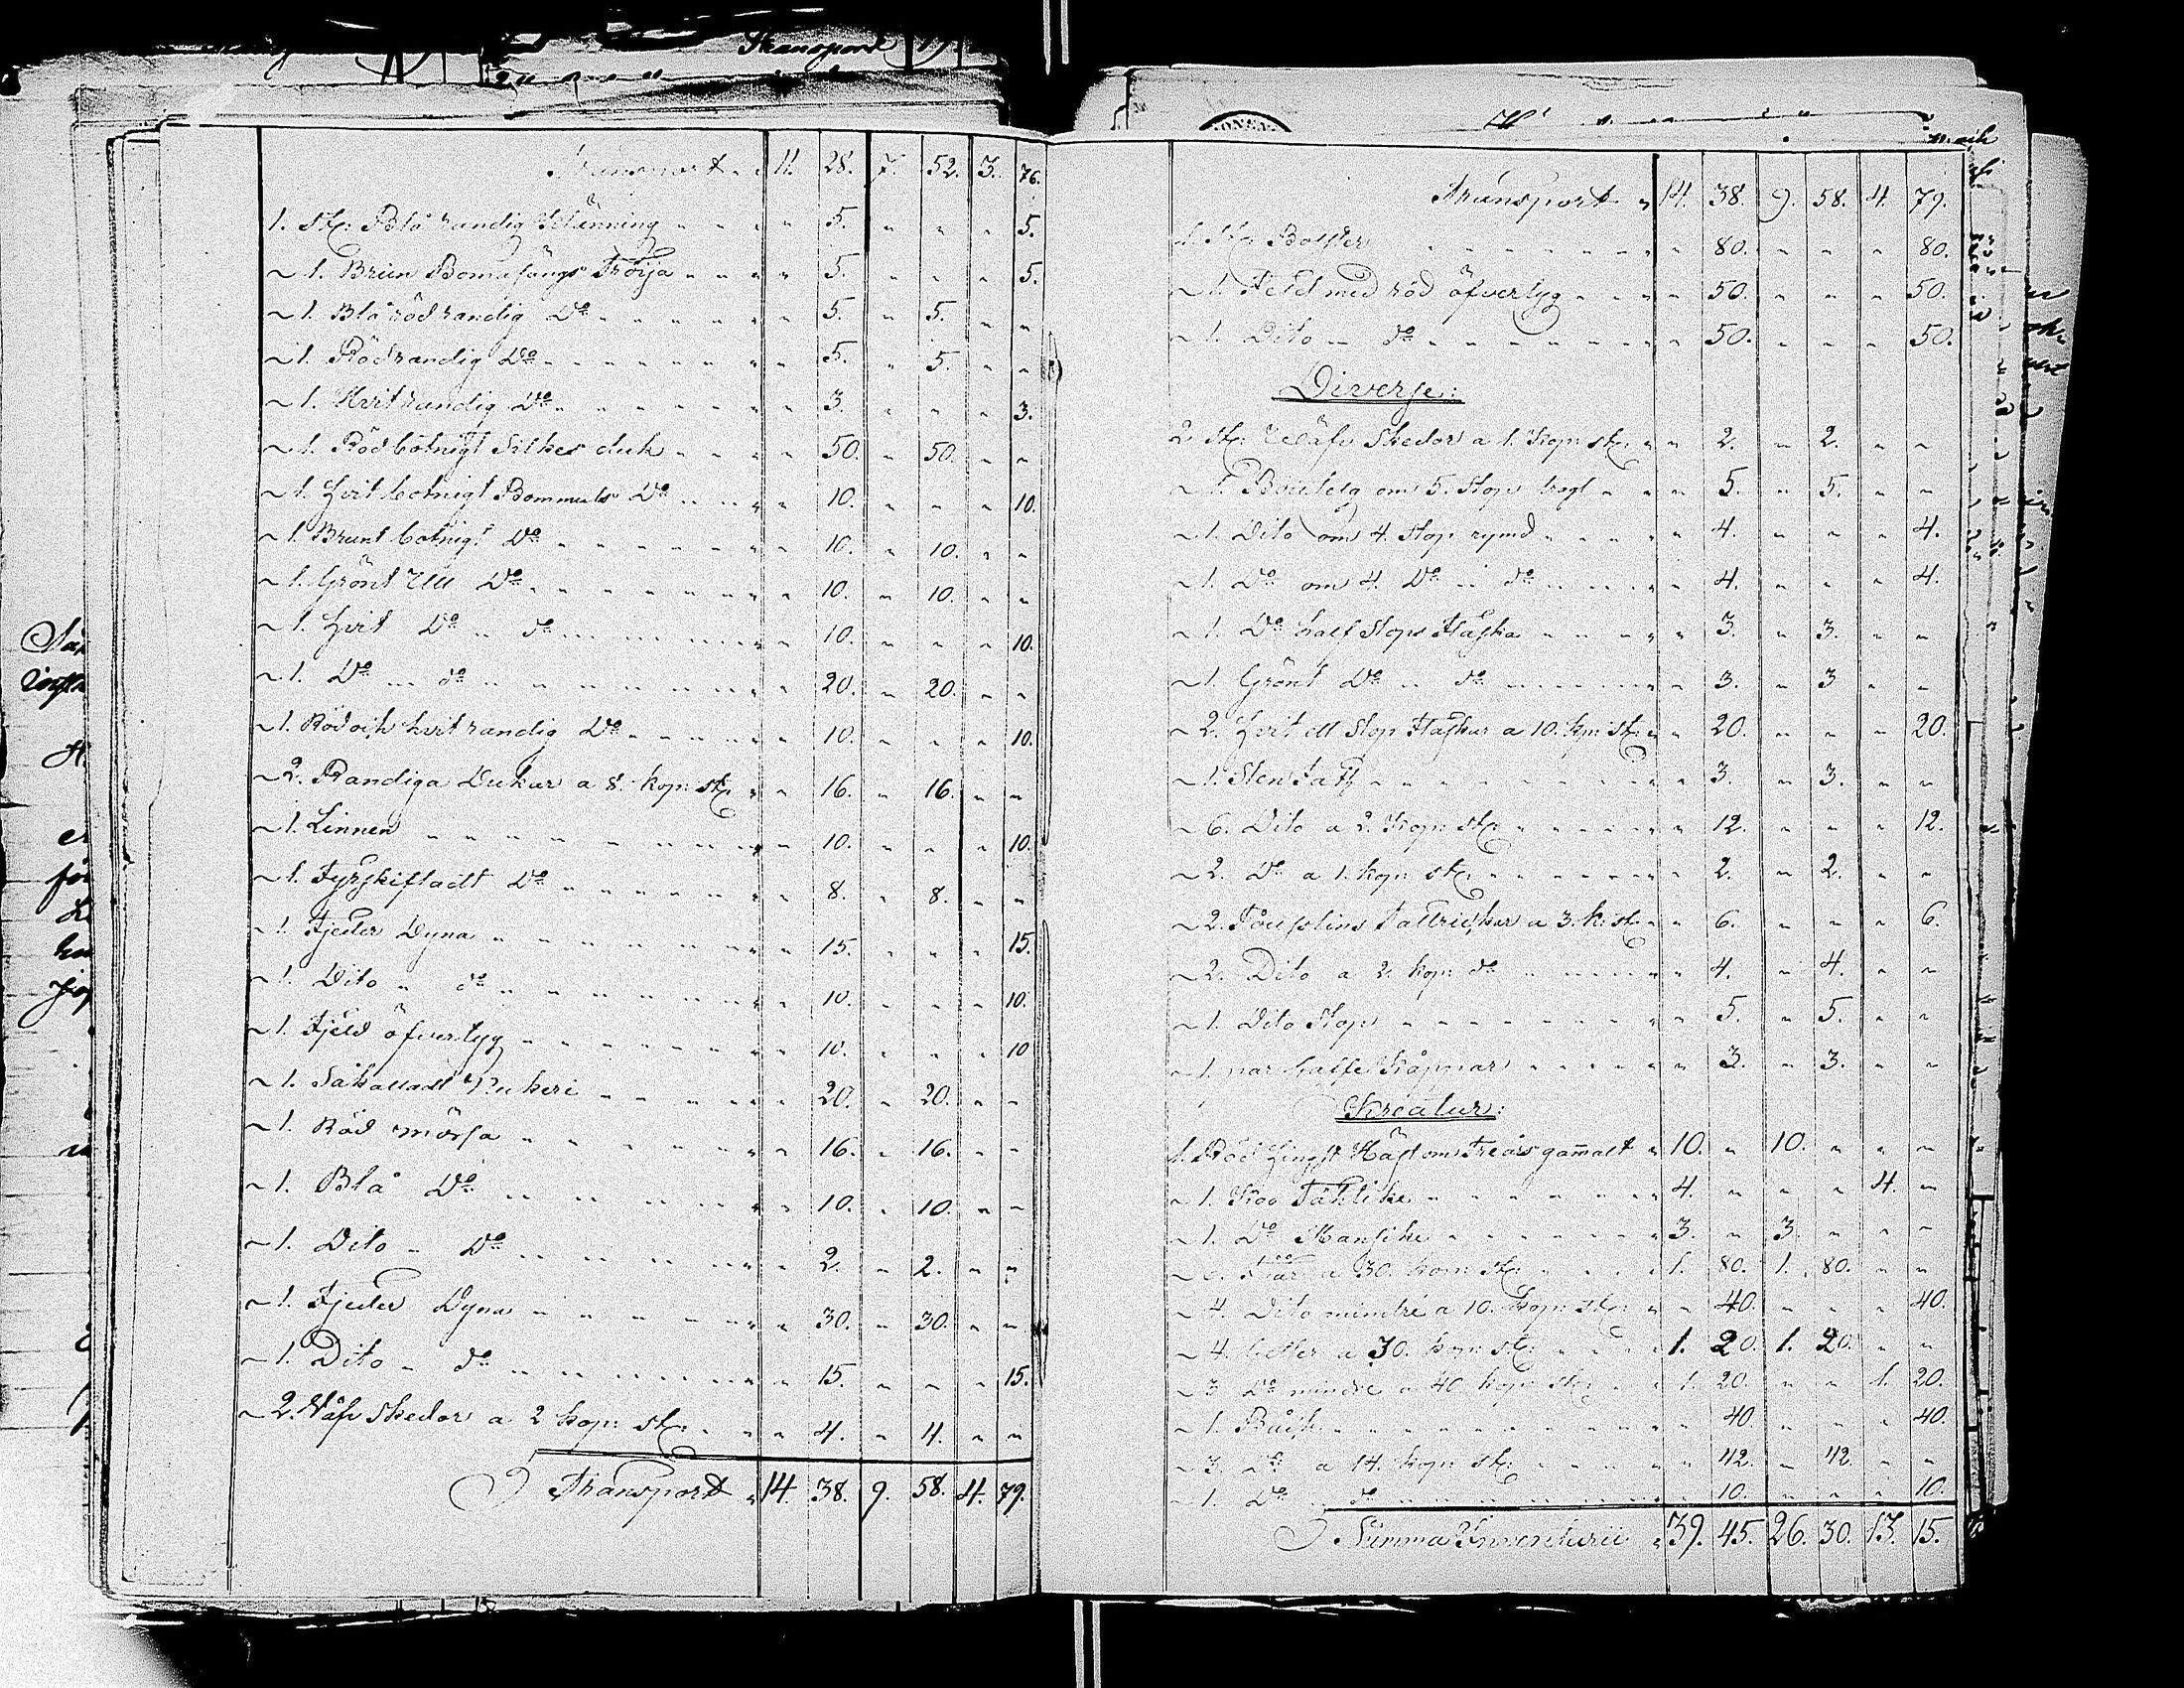 Transport 11. 28. 7. 52. 3. 76.
1. St: Blå randig Klänning " 5. " " " 5.
~ 1. Brun Bomasängs Tröija " 5. " " " 5.
~ 1. Blå röd randig Do " 5. " 5. " "
~ 1. Röd randig Do " 5. " 5. " "
~ 1. Hvit randig Do " 3. " " " 3.
~ 1. Röd botnigt Silkes duk " 50. " 50. " "
~ 1. Hvit botnigt Bommuls Do " 10. " " " 10.
~ 1. Brunt botnigt Do " 10. " 10. " "
~ 1. Grönt Ull Do " 10. " 10. " "
~ 1. Hvit Do " do " 10. " " " 10.
~ 1. Do " do " 20. " 20. " "
~ 1. Röd och hvit randig Do " 10. " " " 10.
~ 2. Randiga Dukar a 8. kop: st: " 16. " 16. " "
~ 1. Linnen " 10. " " " 10.
~ 1. Fyrskiftadt Do " 8. " 8. " "
~ 1. Fjeder Dyna " 15. " " " 15.
~ 1. Dito " do " 10. " " " 10.
~ 1. Fjeld öfvertyg " 10. " " " 10
~ 1. " 20. " 20. " "
~ 1. Röd mössa " 16. " 16. " "
~ 1. Blå Do " 10. " 10. " "
~ 1. Dito " Do " 2. " 2. " "
~ 1. Fjeder Dyna " 30. " 30. " "
~ 1. Dito " do " 15. " " " 15.
~ 2. Näfv Skedor a 2 kop: st: " 4. " 4. " "
Transport " 14. 38. 9. 58. 4. 79.
Transport " 14. 38. 9. 58. 4. 79.
1. St: Bolster " 80. " " " 80.
~ 1. Feld med röd öfvertyg " 50. " " " 50.
~ 1. Dito " do " 50. " " " 50.
Diverse:
2. St: Skedor a 1. kop: st: " 2. " 2. " "
~ 1. Boutelg om 5. Stops " 5. " 5. " "
~ 1. Dito om 4. Stop rymd " 4. " " " 4.
~ 1. Do om 4. Do " do " 4. " " " 4.
~ 1. Do half Stops Flaska " 3. " 3. " "
~ 1. Grönt Do " do " 3. " 3 " "
~ 2. Hvit ett Stop Flaskur a 10. kp: st: " 20. " " " 20.
~ 1. Sten Fatt " 3. " 3. " "
~ 6. Dito a 2. kop: st: " 12. " " " 12.
~ 2. Do a 1. kop: st: " 2. " 2. " "
~ 2. Tallrickar a 3. k: st: " 6. " " " 6.
~ 2. Dito a 2. kop: do " 4. " 4. " "
~ 1. Dito Stop " 5. " 5. " "
~ 1. par kaffe Kåppar " 3. " 3. " "
Kreatur:
1. Röd Hingst Häst om Treårs gamalt " 10. " 10. " " "
~ 1. Koo Tähtike " 4. " " " 4. "
~ 1. Do Mansike " 3. " 3. " " "
~ 6. Fåar a 30. kop: st: " 1. 80. 1. 80. " "
~ 4. Dito mindre a 10. kop: st: " " 40. " " " 40.
~ 4. a 30. kop: st: " 1. 20. 1. 20. " "
~ 3. Do mindre a 40. kop: st: " 1. 20. " " 1. 20.
~ 1. " 40. " " " 40.
~ 3. Do a 14. kop: st: " 42. " 42. " "
~ 1. Do " do " 10. " " " 10.
Summa Inventurii " 39. 45. 26. 30. 13. 15.